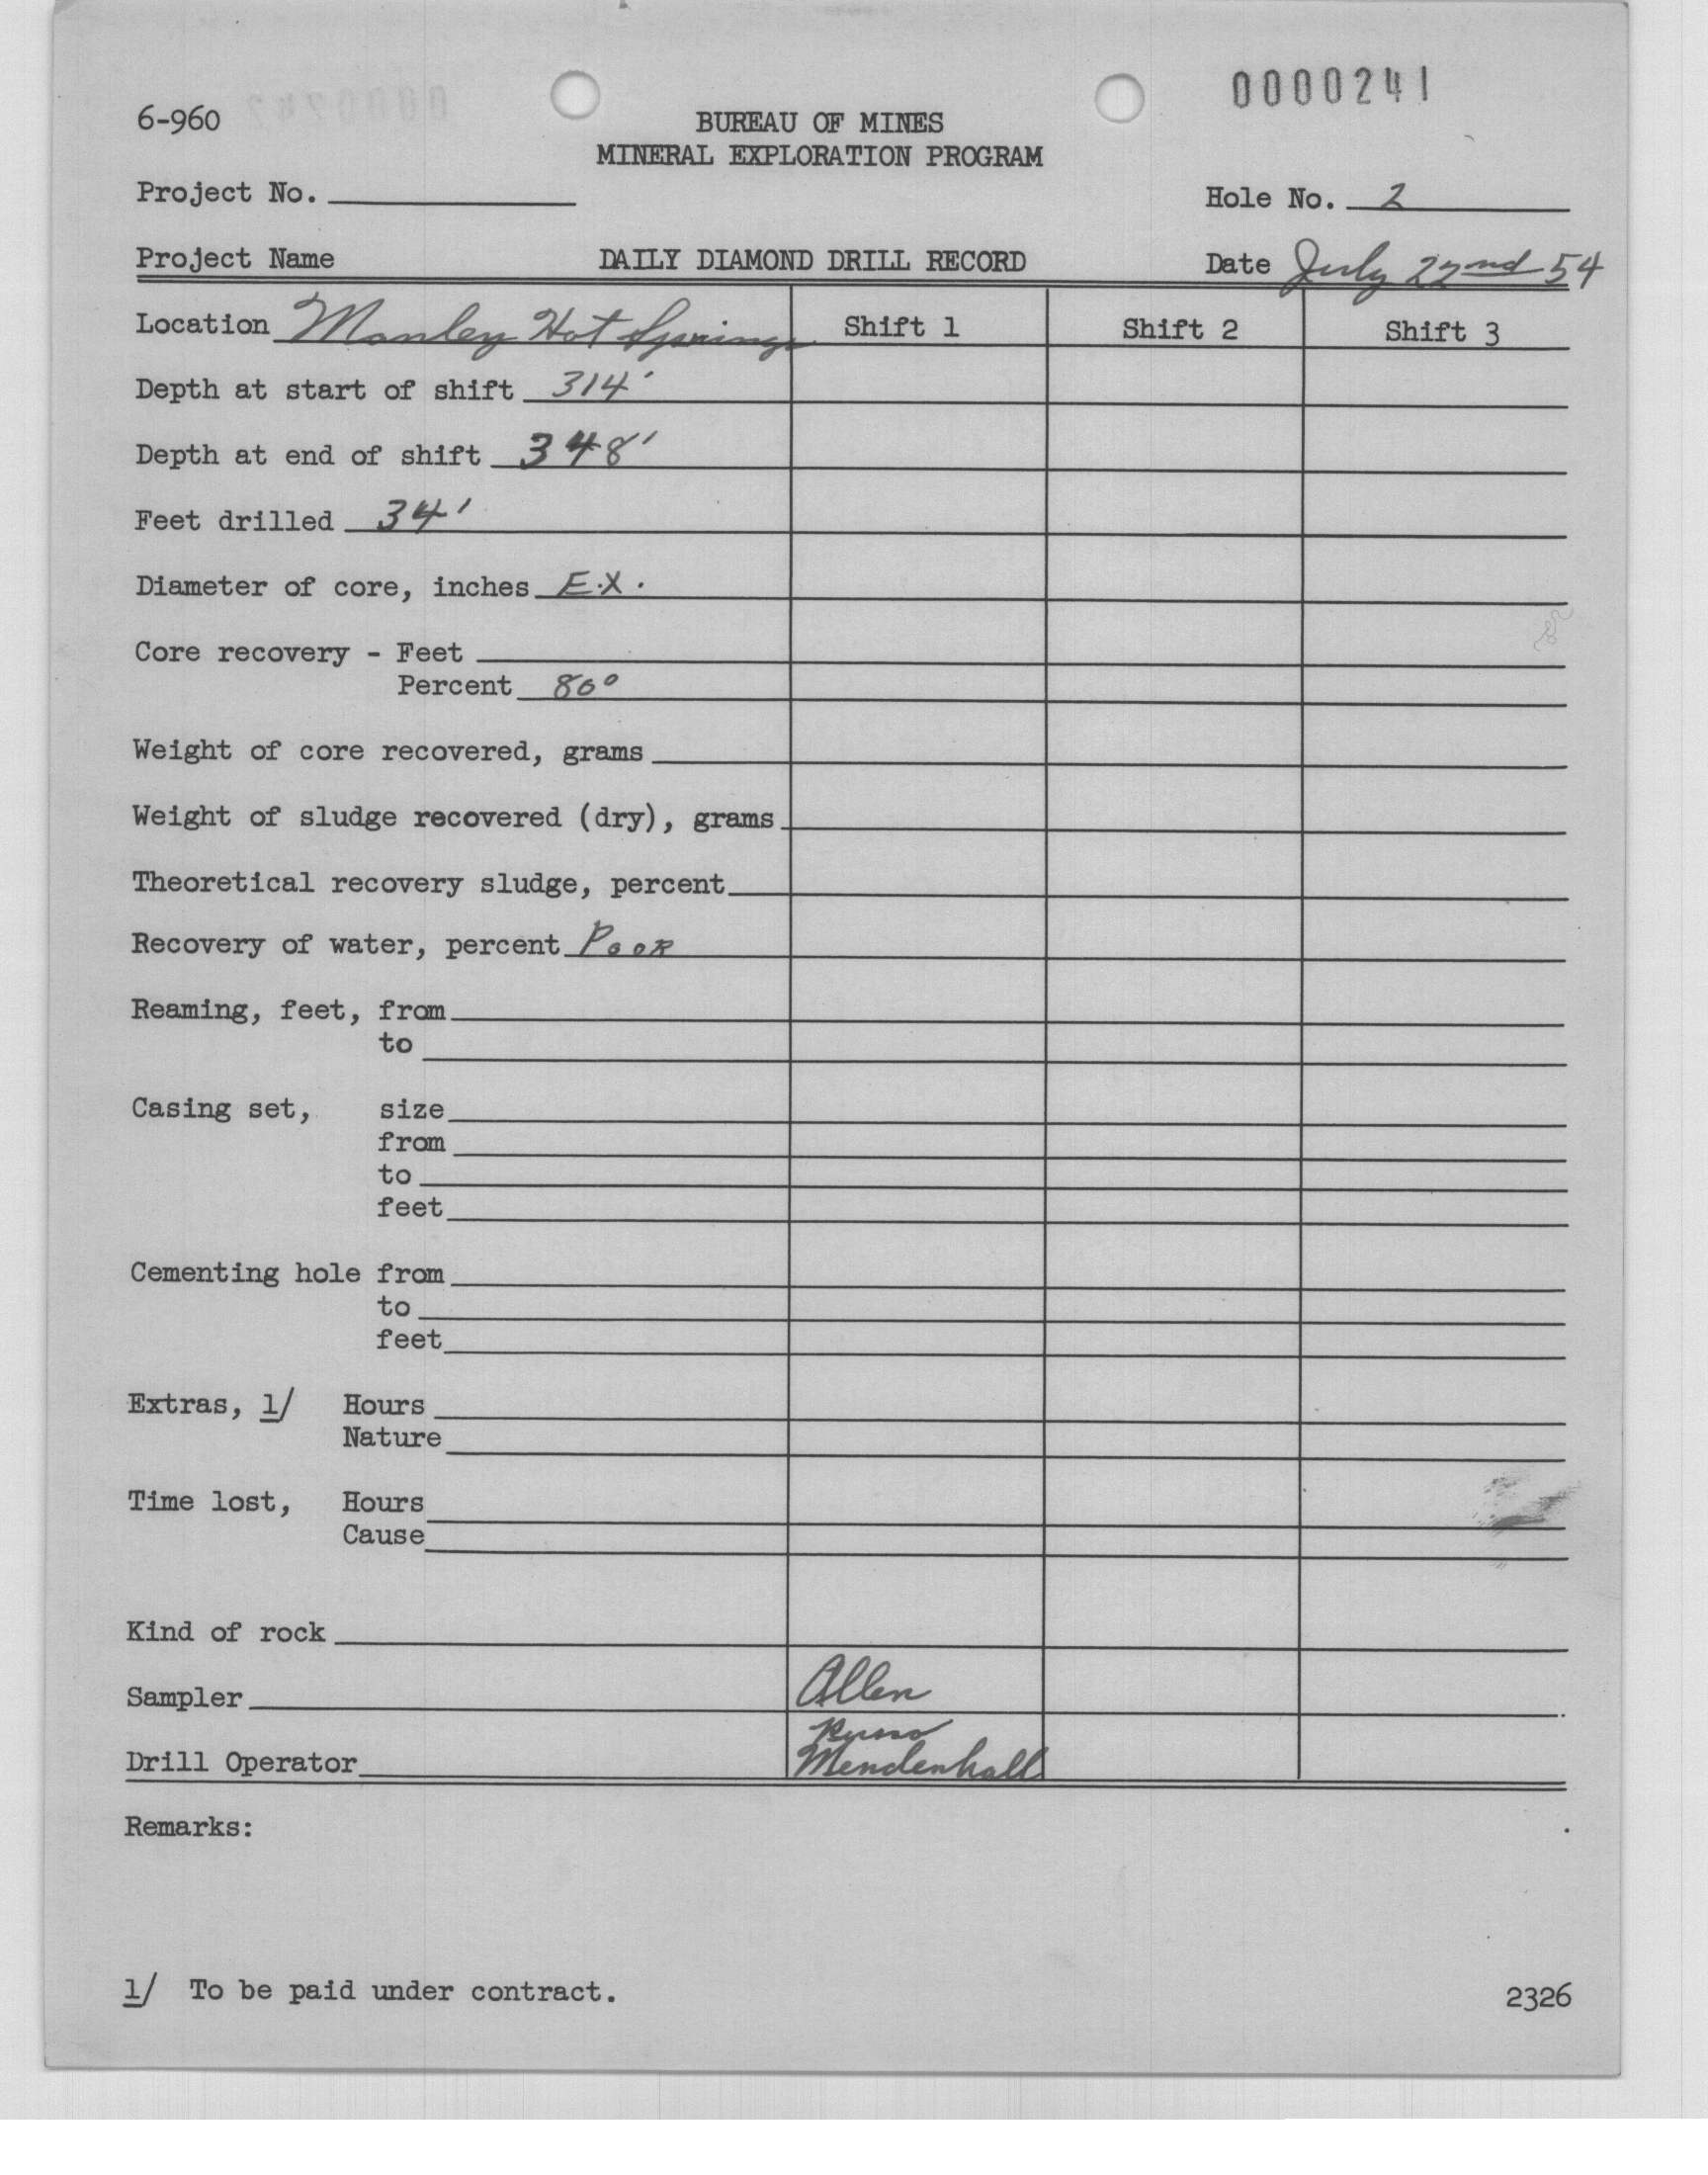 0000241
6-960
BUREAU OF MINES
MINERAL EXPLORATION PROGRAM
Project No.
Hole No. 2
Project Name DAILY DIAMOND DRILL RECORD Date July 22nd 54
Location Manley Hot Springs Shift 1 Shift 2 Shift 3
Depth at start of shift 314'
Depth at end of shift 348'
Feet drilled 34'
Diameter of core, inches E.X.
Core recovery - Feet
Percent 80°
Weight of core recovered, grams
Weight of sludge recovered (dry), grams
Theoretical recovery sludge, percent
Recovery of water, percent Poor
Reaming, feet, from
to
Casing set, size
from
to
feet
Cementing hole from
to
feet
Extras, 1/ Hours
Nature
Time lost, Hours
Cause
Kind of rock
Sampler Allen
Drill Operator Mendenhall
Remarks:
1/ To be paid under contract.
2326